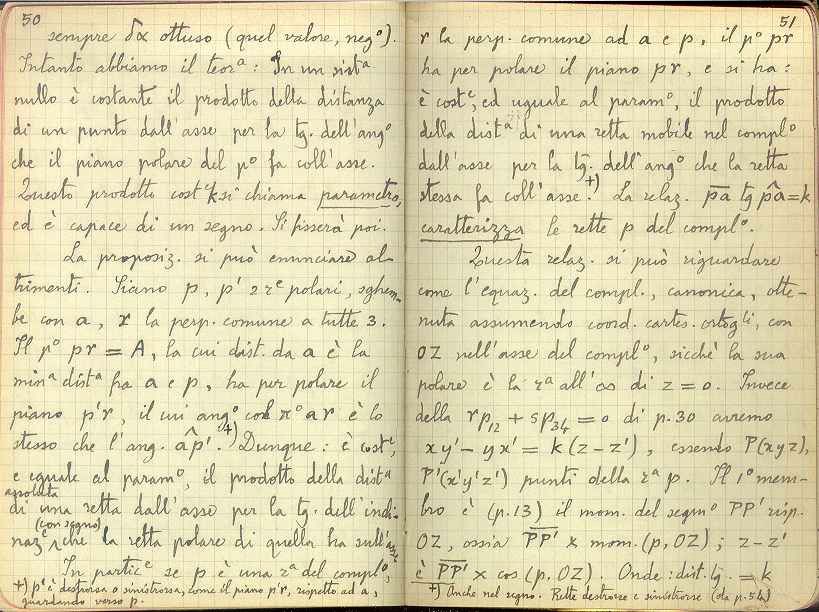 50
sempre δα ottuso (quel valore, negº).
Intanto abbiamo il teorª: In un sistª
nullo è costante il prodotto della distanza
di un punto dall'asse per la tg. dell'angº
che il piano polare del pº fa coll'asse.
Questo prodotto costᵉ k si chiama parametro,
ed è capace di un segno. Si fisserà poi.
La proposiz. si può enunciare al-
trimenti. Siano p, p' 2 rᵉ polari, sghem-
be con a, r la perp. comune a tutte 3.
Il pº pr = A, la cui dist. da a è la
minª distª fra a e p, ha per polare il
piano p'r, il cui angº col πº ar è lo
stesso che l'ang. ap'. +) Dunque: è costᵉ,
e eguale al paramº, il prodotto della distª
assoluta
di una retta dall'asse per la tg. dell'incli-
(con segno)
nazᵉ che la retta polare di quella ha sull'asse
In particᵉ se p è una rª del complº,
+) p' è destrorsa o sinistrorsa, come il piano p'r, rispetto ad a,
guardando verso p.
51
r la perp. comune ad a e p, il pº pr
ha per polare il piano pr, e si ha:
è costᵉ, ed uguale al paramº, il prodotto
della distª di una retta mobile nel complº
dall'asse per la tg. dell'angº che la retta
stessa fa coll'asse. +) La relaz. pa tg pa = k
caratterizza le rette p del complº.
Questa relaz. si può riguardare
come l'equaz. del compl., canonica, otte-
nuta assumendo coord. cartes. ortogˡⁱ, con
OZ nell'asse del complº, sicchè la sua
polare è la rª all'∞ di z = 0. Invece
della rp₁₂ + sp₃₄ = 0 di p. 30 avremo
xy' - yx' = k (z - z'), essendo P(xyz),
P'(x'y'z') punti della rª p. Il 1º mem-
bro è (p. 13) il mom. del segmº PP' risp.
OZ, ossia PP' × mom. (p, OZ); z - z'
è PP' × cos (p, OZ). Onde: dist. tg. = k
+) Anche nel segno. Rette destrorse e sinistrorse (da p. 54)